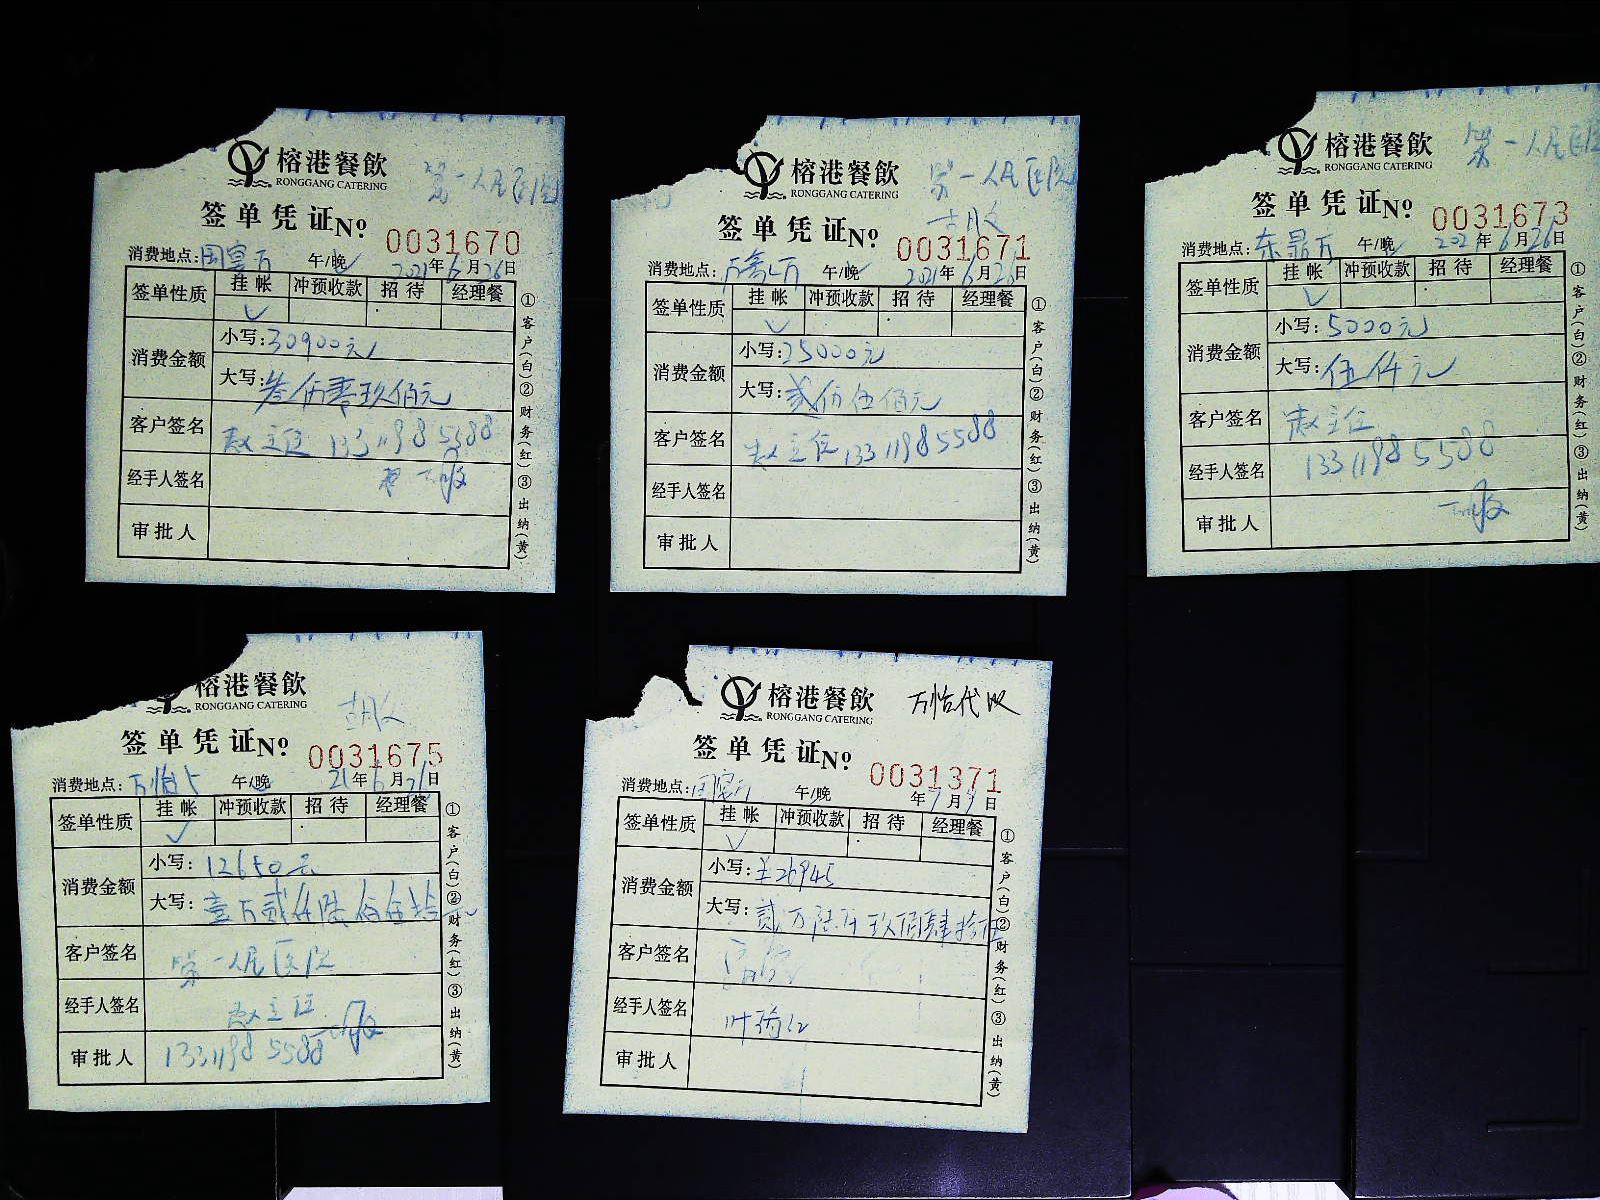 榕港餐飲
RONGGANG CATERING
第一人民医院
签单凭证№ 0031670
消费地点: 午/晚 2021年6月26日
签单性质 挂帐 冲预收款 招待 经理餐
消费金额
小写:30900元
大写:叁万零玖佰元
客户签名 赵主任 13311985588
经手人签名
审批人
①客户(白)②财务(红)③出纳(黄)
榕港餐飲
RONGGANG CATERING
第一人民医院
签单凭证№ 0031671
消费地点: 午/晚 2021年6月26日
签单性质 挂帐 冲预收款 招待 经理餐
消费金额
小写:25000元
大写:
客户签名 赵主任 13311985588
经手人签名
审批人
①客户(白)②财务(红)③出纳(黄)
榕港餐飲
RONGGANG CATERING
第一人民医院
签单凭证№ 0031673
消费地点: 午/晚 2021年6月26日
签单性质 挂帐 冲预收款 招待 经理餐
消费金额
小写:5000元
大写:伍仟元
客户签名 赵主任
经手人签名 13311985588
审批人
①客户(白)②财务(红)③出纳(黄)
榕港餐飲
RONGGANG CATERING
签单凭证№ 0031675
消费地点: 午/晚 21年6月26日
签单性质 挂帐 冲预收款 招待 经理餐
消费金额
小写:12650元
大写:壹万贰仟陆佰伍拾元
客户签名 第一人民医院
经手人签名 赵主任
审批人 13311985588
①客户(白)②财务(红)③出纳(黄)
榕港餐飲
RONGGANG CATERING
签单凭证№ 0031371
消费地点: 午/晚 年7月9日
签单性质 挂帐 冲预收款 招待 经理餐
消费金额
小写:¥26945
大写:贰万陆仟玖佰肆拾伍
客户签名
经手人签名
审批人
①客户(白)②财务(红)③出纳(黄)